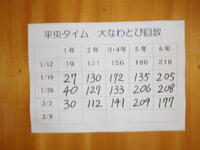 平央タイム 大なわとび回数
1年 2年 3・4年 5年 6年
1/12 19 121 156 186 218
1/19 27 130 172 135 205
1/26 40 129 133 206 208
2/2 30 112 141 209 177
2/9